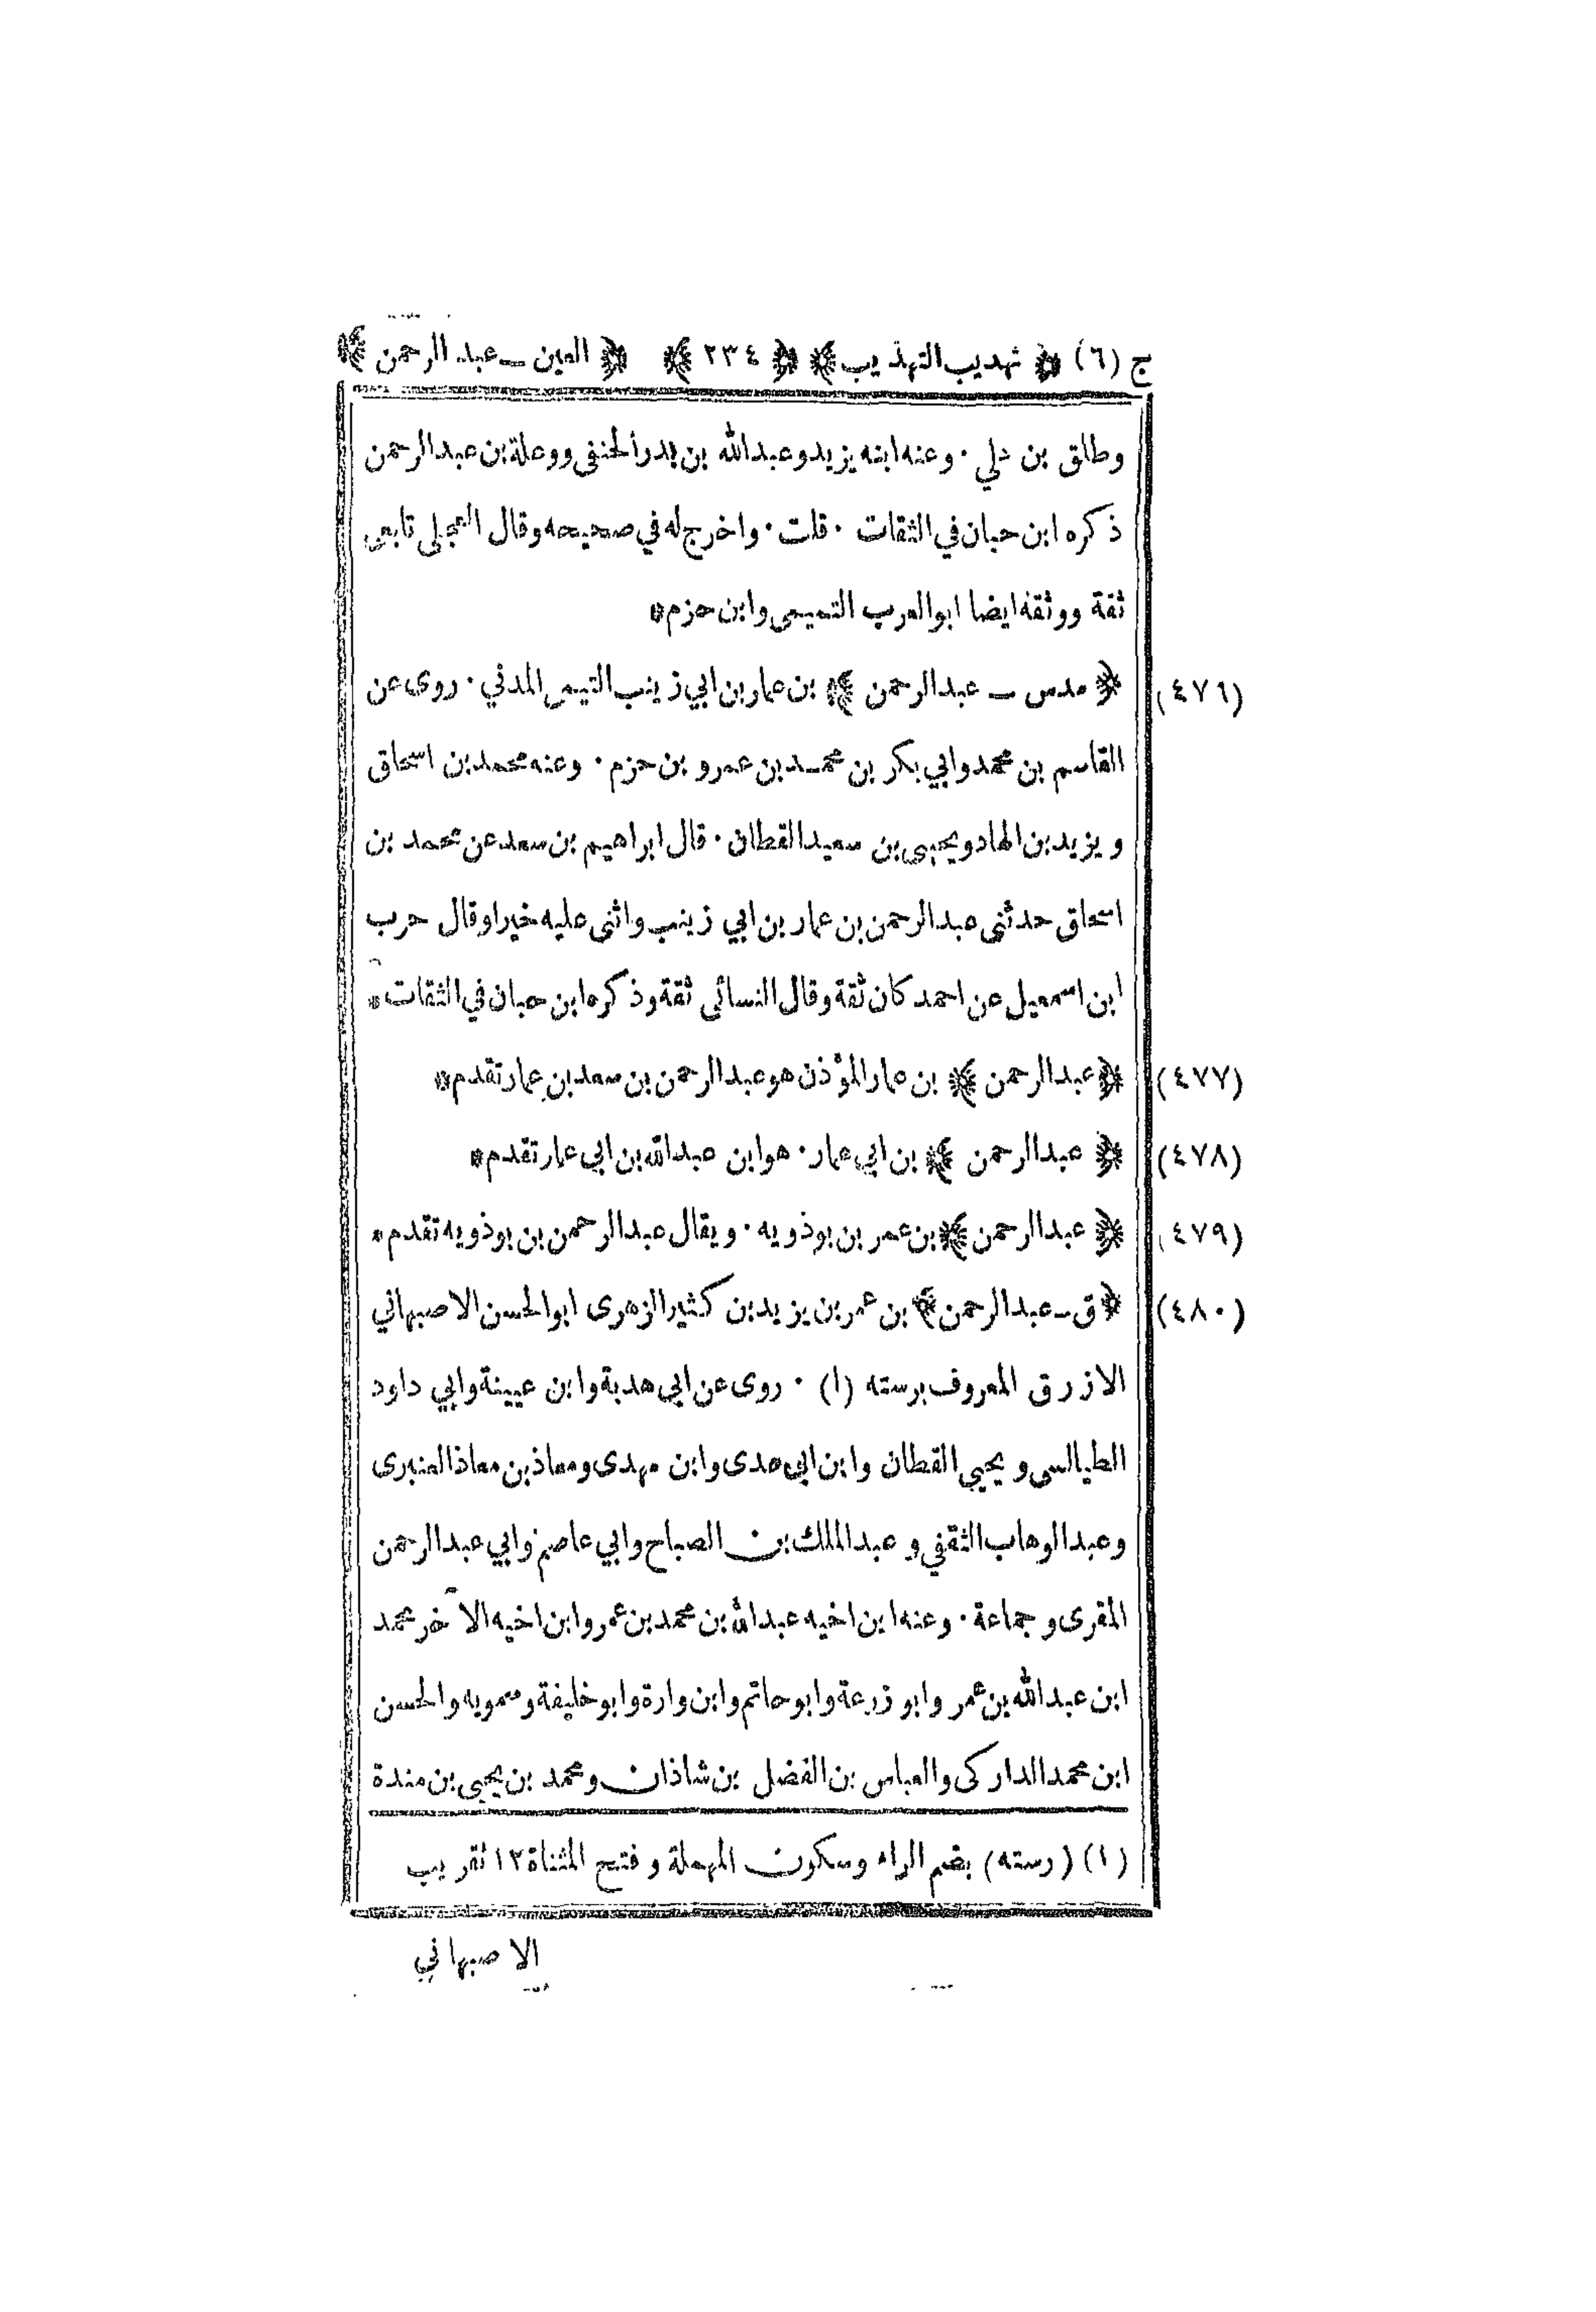 ج (٦) ﴿ تهذيب التهذيب ﴾ ﴿ ٢٣٤ ﴾ ﴿ العين ــ عبد الرحمن ﴾
وطلق بن علي ٠ وعنه ابنه يزيد وعبد الله بن بدر الحنفى ووعلة بن عبد الرحمن
ذكره ابن حبان في الثقات ٠ قلت ٠ واخرج له في صحيحه وقال العجلى تابعى
ثقة ووثقه ايضا ابو العرب التميمى وابن حزم*
(٤٧٦) ﴿ مدس ــ عبد الرحمن ﴾ بن عمار بن ابي زينب التيمى المدني ٠ روى عن
القاسم بن محمد وابي بكر بن محمد بن عمرو بن حزم ٠ وعنه محمد بن اسحاق
ويزيد بن الهاد ويحيى بن سعيد القطان ٠ قال ابراهيم بن سعد عن محمد بن
اسحاق حدثنى عبد الرحمن بن عمار بن ابي زينب واثنى عليه خيرا وقال حرب
ابن اسمعيل عن احمد كان ثقة وقال النسائى ثقة وذكره ابن حبان في الثقات*
(٤٧٧) ﴿ عبد الرحمن ﴾ بن عمار المؤذن هو عبد الرحمن بن سعد بن عمار تقدم*
(٤٧٨) ﴿ عبد الرحمن ﴾ بن ابي عمار ٠ هو ابن عبد الله بن ابي عمار تقدم*
(٤٧٩) ﴿ عبد الرحمن ﴾ بن عمر بن بوذويه ٠ ويقال عبد الرحمن بن بوذويه تقدم*
(٤٨٠) ﴿ ق ــ عبد الرحمن ﴾ بن عمر بن يزيد بن كثير الزهرى ابو الحسن الاصبهاني
الازرق المعروف برسته (١) ٠ روى عن ابى هدبة وابن عيينة وابي داود
الطيالسى ويحيى القطان وابن ابي عدى وابن مهدى ومعاذ بن معاذ العنبرى
وعبد الوهاب الثقفي وعبد الملك بن الصباح وابي عاصم وابي عبد الرحمن
المقرى وجماعة ٠ وعنه ابن اخيه عبد الله بن محمد بن عمر وابن اخيه الآخر محمد
ابن عبد الله بن عمر وابو زرعة وابو حاتم وابن وارة وابو خليفة وسمويه والحسن
ابن محمد الداركى والعباس بن الفضل بن شاذان ومحمد بن يحيى بن مندة
(١) (رسته) بضم الراء وسكون المهملة وفتح المثناة ١٢ تقريب
الاصبهاني